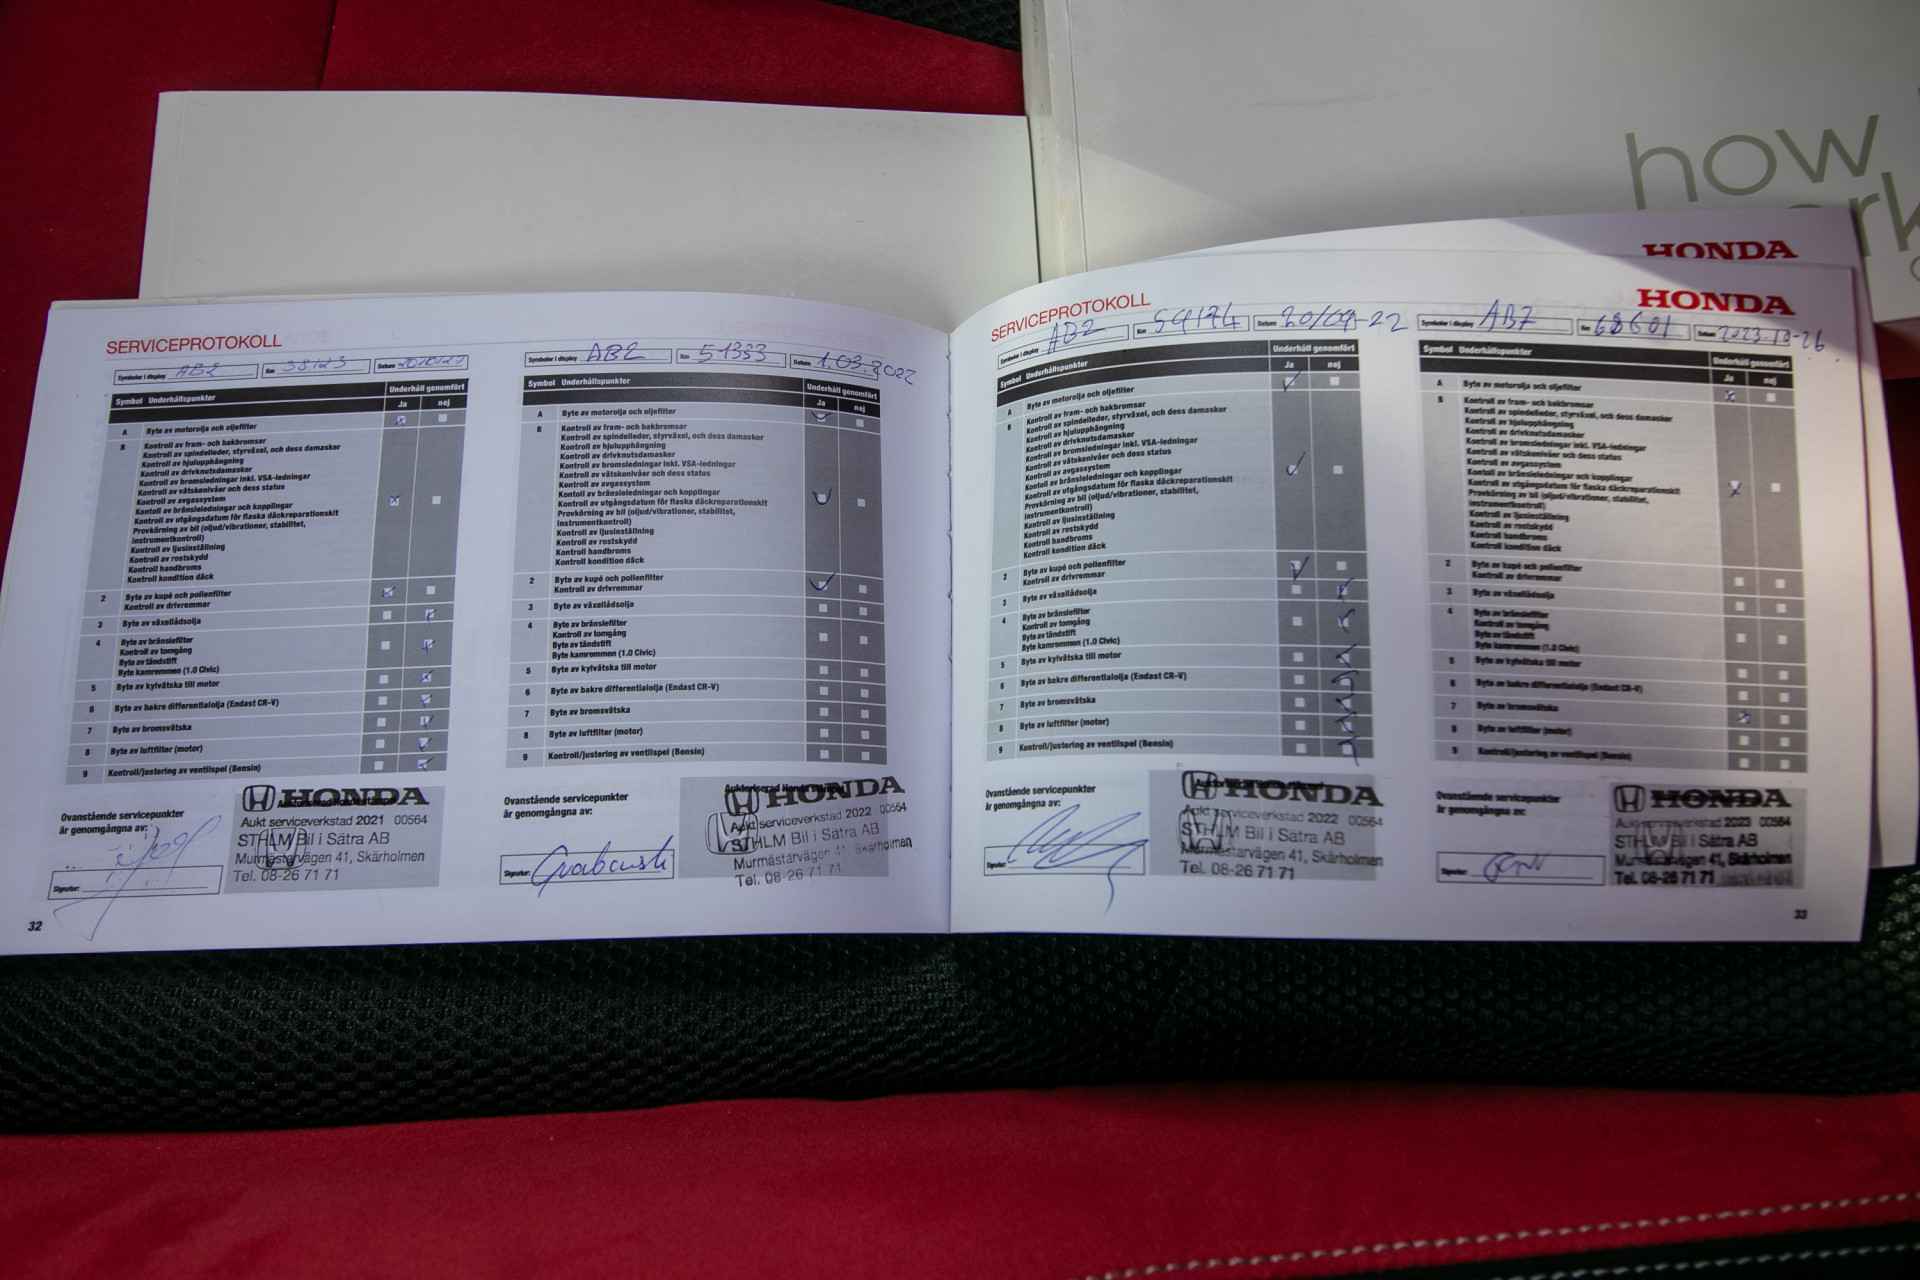 how
HONDA
HONDA
SERVICEPROTOKOLL
Symboler i display AB2 Km 38123 Datum
Symbol Underhållspunkter Underhåll genomfört
Ja nej
A Byte av motorolja och oljefilter
B Kontroll av fram- och bakbromsar
Kontroll av spindelleder, styrväxel, och dess damasker
Kontroll av hjulupphängning
Kontroll av drivknutsdamasker
Kontroll av bromsledningar inkl. VSA-ledningar
Kontroll av vätskenivåer och dess status
Kontroll av avgassystem
Kontoll av bränsleledningar och kopplingar
Kontroll av utgångsdatum för flaska däckreparationskit
Provkörning av bil (oljud/vibrationer, stabilitet,
instrumentkontroll)
Kontroll av ljusinställning
Kontroll av rostskydd
Kontroll handbroms
Kontroll kondition däck
2 Byte av kupé och pollenfilter
Kontroll av drivremmar
3 Byte av växellådsolja
4 Byte av bränslefilter
Kontroll av tomgång
Byte av tändstift
Byte kamremmen (1.0 Civic)
5 Byte av kylvätska till motor
6 Byte av bakre differentialolja (Endast CR-V)
7 Byte av bromsvätska
8 Byte av luftfilter (motor)
9 Kontroll/justering av ventilspel (Bensin)
Ovanstående servicepunkter
är genomgångna av:
Signatur:
HONDA
Aukt serviceverkstad 2021 00564
STHLM Bil i Sätra AB
Murmästarvägen 41, Skärholmen
Tel. 08-26 71 71
32
Symboler i display AB2 Km 51333 Datum 1.03.2022
Symbol Underhållspunkter Underhåll genomfört
Ja nej
A Byte av motorolja och oljefilter
B Kontroll av fram- och bakbromsar
Kontroll av spindelleder, styrväxel, och dess damasker
Kontroll av hjulupphängning
Kontroll av drivknutsdamasker
Kontroll av bromsledningar inkl. VSA-ledningar
Kontroll av vätskenivåer och dess status
Kontroll av avgassystem
Kontoll av bränsleledningar och kopplingar
Kontroll av utgångsdatum för flaska däckreparationskit
Provkörning av bil (oljud/vibrationer, stabilitet,
instrumentkontroll)
Kontroll av ljusinställning
Kontroll av rostskydd
Kontroll handbroms
Kontroll kondition däck
2 Byte av kupé och pollenfilter
Kontroll av drivremmar
3 Byte av växellådsolja
4 Byte av bränslefilter
Kontroll av tomgång
Byte av tändstift
Byte kamremmen (1.0 Civic)
5 Byte av kylvätska till motor
6 Byte av bakre differentialolja (Endast CR-V)
7 Byte av bromsvätska
8 Byte av luftfilter (motor)
9 Kontroll/justering av ventilspel (Bensin)
Ovanstående servicepunkter
är genomgångna av:
Signatur:
HONDA
Aukt serviceverkstad 2022 00564
STHLM Bil i Sätra AB
Murmästarvägen 41, Skärholmen
Tel. 08-26 71 71
SERVICEPROTOKOLL
Symboler i display AB2 Km 59174 Datum 20/09-22
Symbol Underhållspunkter Underhåll genomfört
Ja nej
A Byte av motorolja och oljefilter
B Kontroll av fram- och bakbromsar
Kontroll av spindelleder, styrväxel, och dess damasker
Kontroll av hjulupphängning
Kontroll av drivknutsdamasker
Kontroll av bromsledningar inkl. VSA-ledningar
Kontroll av vätskenivåer och dess status
Kontroll av avgassystem
Kontoll av bränsleledningar och kopplingar
Kontroll av utgångsdatum för flaska däckreparationskit
Provkörning av bil (oljud/vibrationer, stabilitet,
instrumentkontroll)
Kontroll av ljusinställning
Kontroll av rostskydd
Kontroll handbroms
Kontroll kondition däck
2 Byte av kupé och pollenfilter
Kontroll av drivremmar
3 Byte av växellådsolja
4 Byte av bränslefilter
Kontroll av tomgång
Byte av tändstift
Byte kamremmen (1.0 Civic)
5 Byte av kylvätska till motor
6 Byte av bakre differentialolja (Endast CR-V)
7 Byte av bromsvätska
8 Byte av luftfilter (motor)
9 Kontroll/justering av ventilspel (Bensin)
Ovanstående servicepunkter
är genomgångna av:
Signatur:
HONDA
Aukt serviceverkstad 2022 00564
STHLM Bil i Sätra AB
Murmästarvägen 41, Skärholmen
Tel. 08-26 71 71
Symboler i display AB7 Km 68601 Datum 2023.10-26
Symbol Underhållspunkter Underhåll genomfört
Ja nej
A Byte av motorolja och oljefilter
B Kontroll av fram- och bakbromsar
Kontroll av spindelleder, styrväxel, och dess damasker
Kontroll av hjulupphängning
Kontroll av drivknutsdamasker
Kontroll av bromsledningar inkl. VSA-ledningar
Kontroll av vätskenivåer och dess status
Kontroll av avgassystem
Kontoll av bränsleledningar och kopplingar
Kontroll av utgångsdatum för flaska däckreparationskit
Provkörning av bil (oljud/vibrationer, stabilitet,
instrumentkontroll)
Kontroll av ljusinställning
Kontroll av rostskydd
Kontroll handbroms
Kontroll kondition däck
2 Byte av kupé och pollenfilter
Kontroll av drivremmar
3 Byte av växellådsolja
4 Byte av bränslefilter
Kontroll av tomgång
Byte av tändstift
Byte kamremmen (1.0 Civic)
5 Byte av kylvätska till motor
6 Byte av bakre differentialolja (Endast CR-V)
7 Byte av bromsvätska
8 Byte av luftfilter (motor)
9 Kontroll/justering av ventilspel (Bensin)
Ovanstående servicepunkter
är genomgångna av:
Signatur:
HONDA
Aukt serviceverkstad 2023 00564
STHLM Bil i Sätra AB
Murmästarvägen 41, Skärholmen
Tel. 08-26 71 71
33